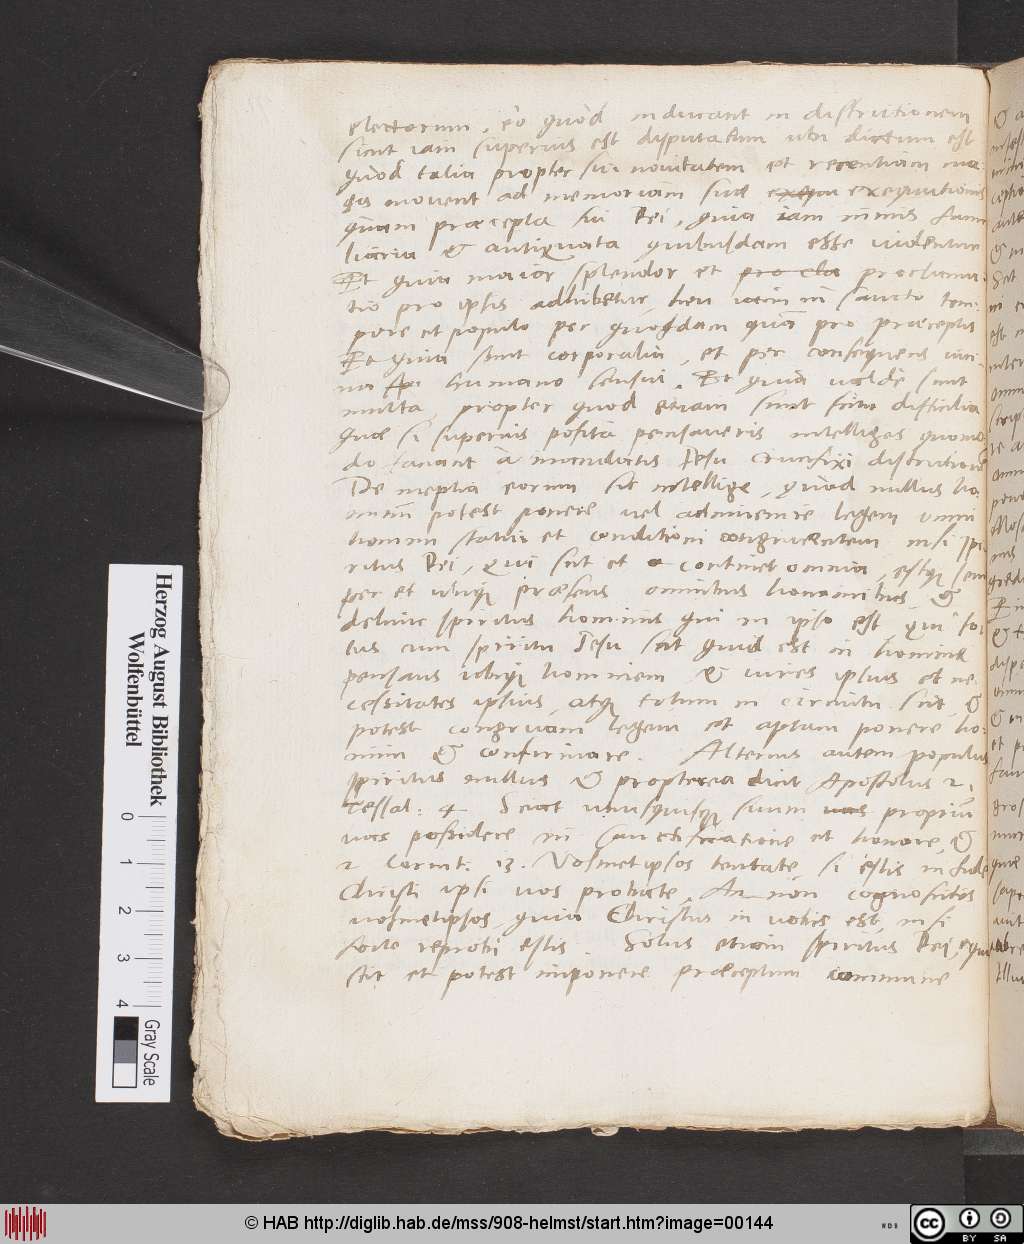 electorum, eo quòd inducant in distractionem
sicut iam superius est disputatum ubi dictum est
quòd talia propter sui nouitatem et recentiam ma-
gis mouent ad memoriam suæ executionis
quàm præcepta sui Dei, quia iam nimis fami
liaria & antiquata quibusdam esse uidentur
Et quia maior splendor et pro cla proclama-
tio pro ipsis adhibetur, heu iam in sancto tem-
pore et populo per quosdam quàm pro præceptis
Et quia sunt corporalia, et per consequens uici
na humano sensui. Et quia ualdè sunt
multa, propter quod etiam sunt factu difficilia
Quæ si superius posita pensaueris intelliges quomo
do faciant à mandatis Jesu Crucifixi distractionem
De ineptia eorum sic intellige, quòd nullus ho-
minum potest ponere uel adinuenire legem omni
homini statui et conditioni congruentem nisi spi-
ritus Dei, qui scit et continet omnia, estq; sem
per et ubiq; præsens omnibus hominibus &
deinde spiritus hominis qui in ipso est, qui to-
tus cum spiritu Jesu scit quid est in homine
pensans ubiq; hominem & uires ipsius et ne
cessitates ipsius, atq; totum in circuitu scit, &
potest congruam legem et aptam ponere ho-
mini & confirmare. Alterius autem populus
spiritus nullus & propterea dicit Apostolus 1.
Tessal: 4 Sciat unusquisq; suum uas proprium
uas possidere in sanctificatione et honore, &
2 Corint. 13. Vosmetipsos tentate, si estis in fide
Christi ipsi uos probate, An non cognoscitis
uosmetipsos, quia Christus in uobis est, nisi
forte reprobi estis. Solus etiam spiritus Dei, equi
scit et potest imponere præceptum commune
Herzog August Bibliothek
Wolfenbüttel
0 1 2 3 4
Gray Scale
© HAB http://diglib.hab.de/mss/908-helmst/start.htm?image=00144
WDB
cc BY SA